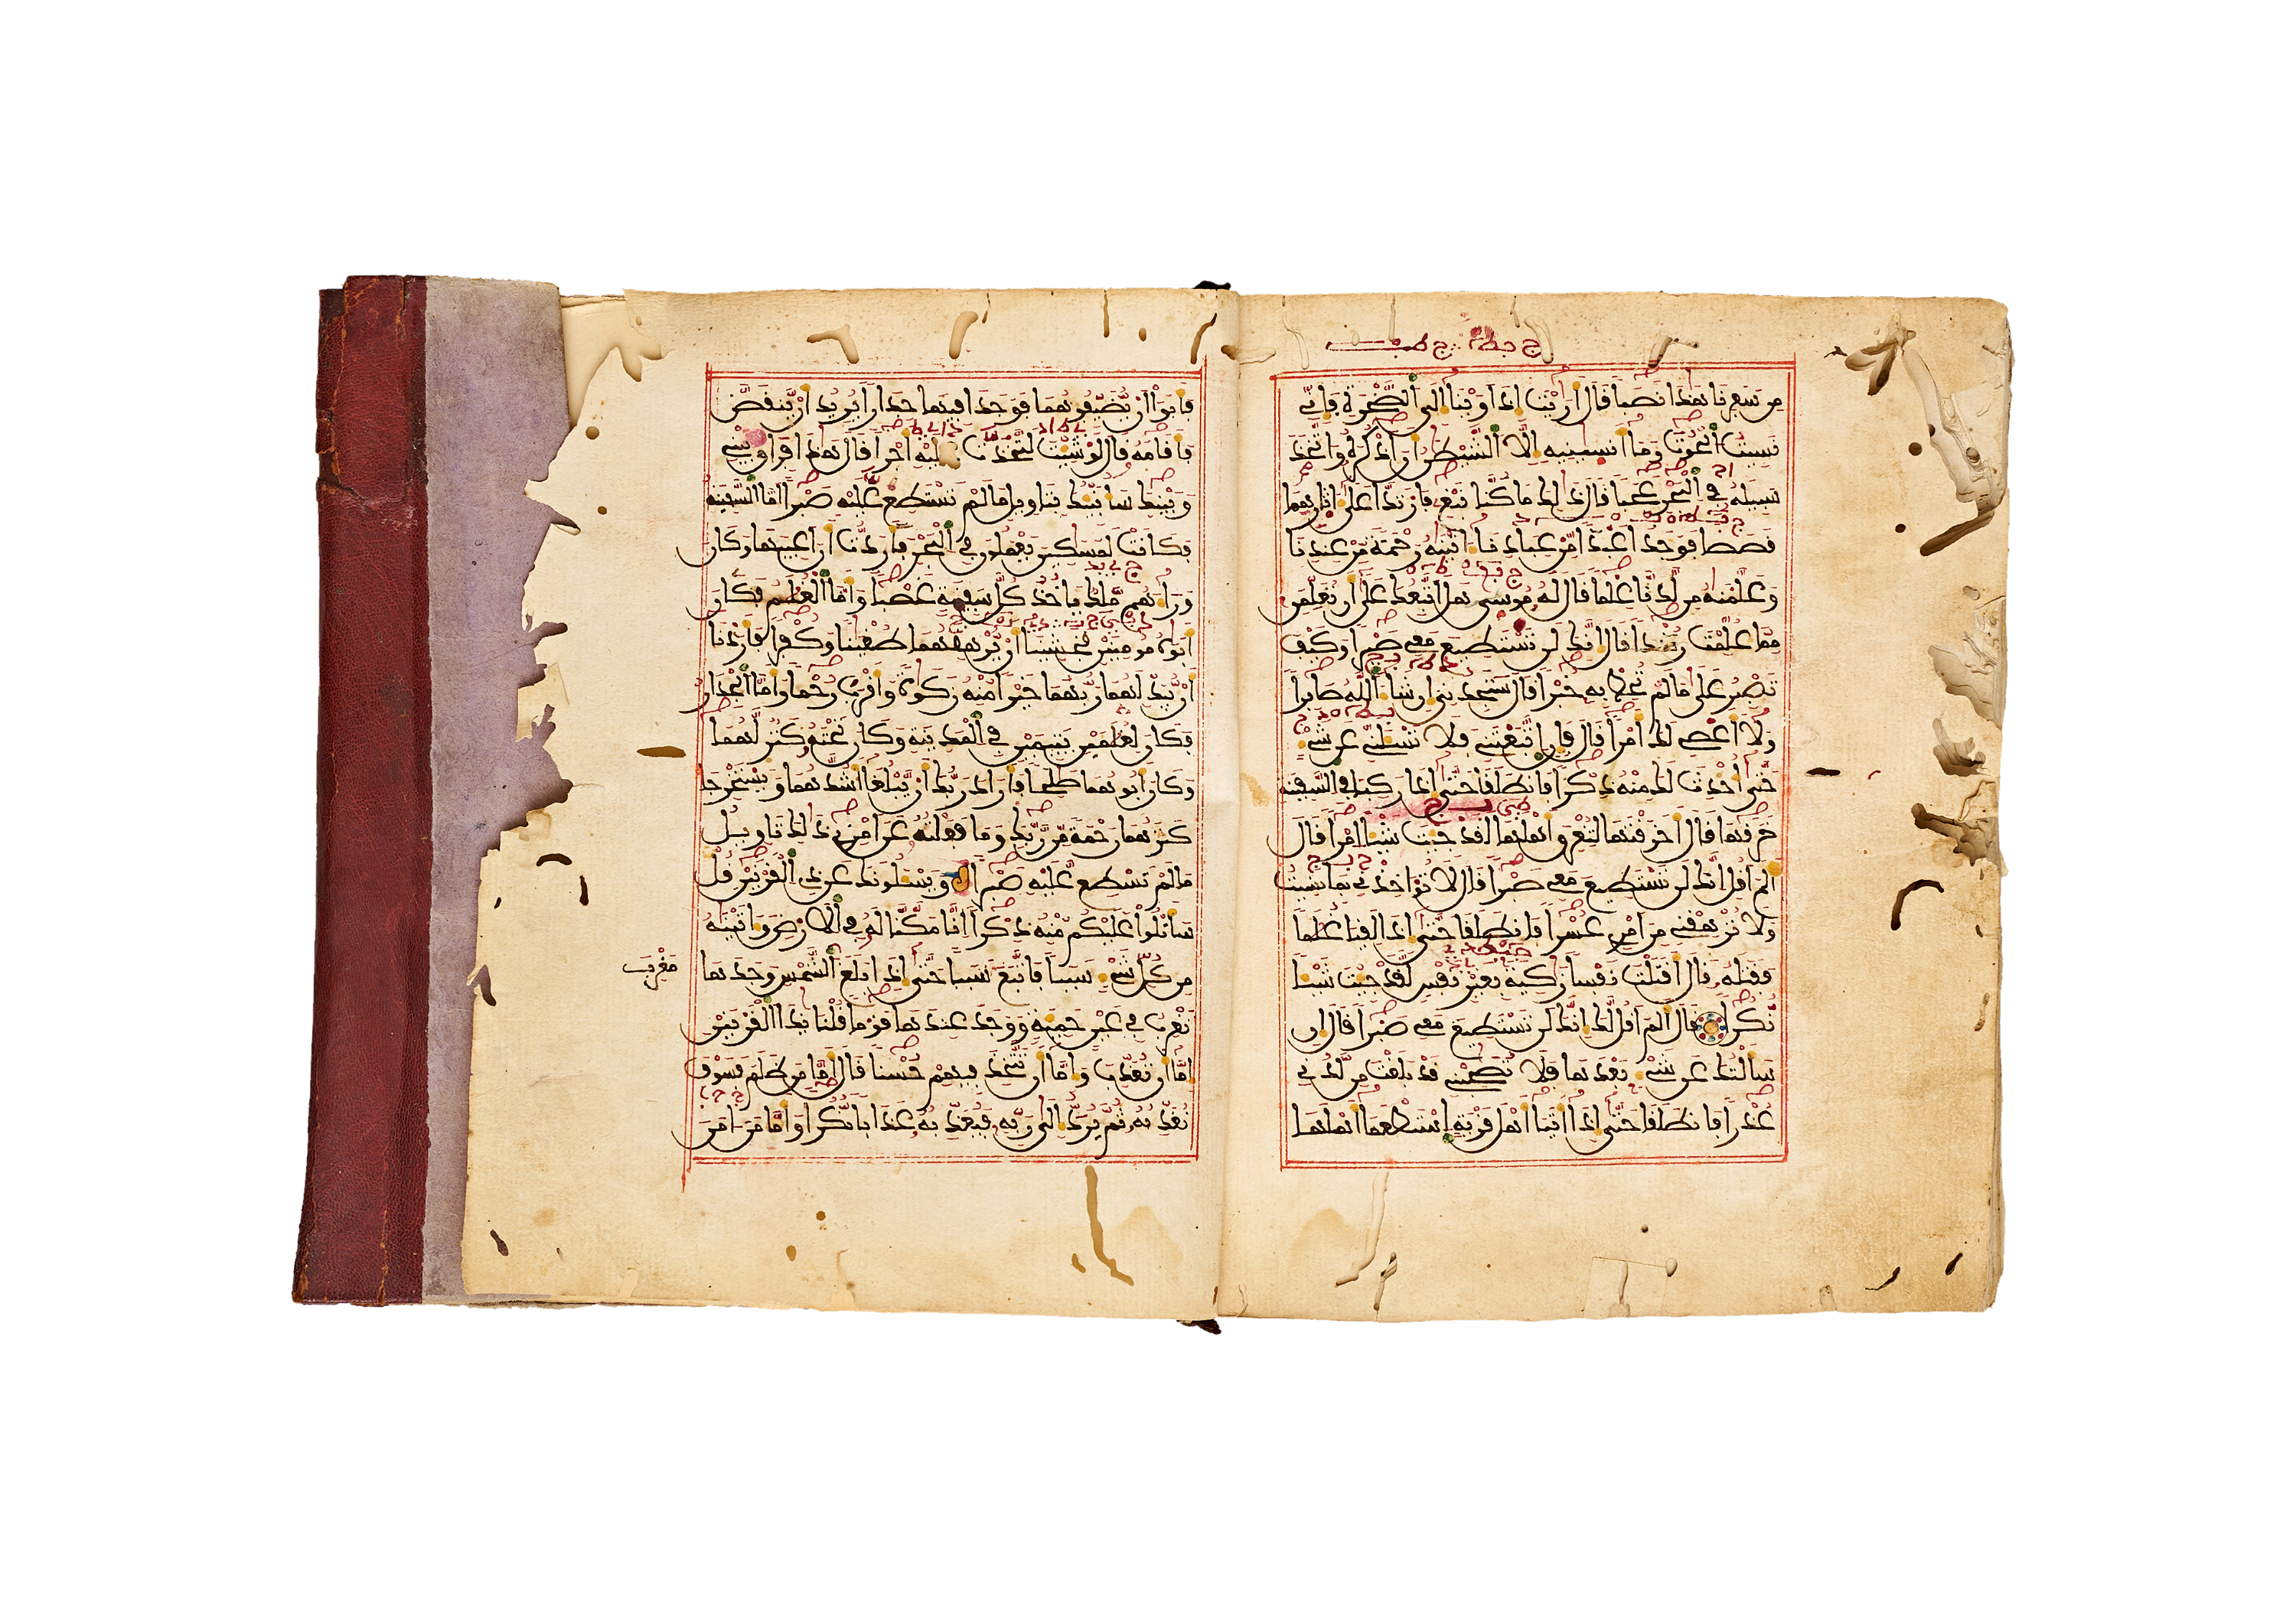 من سفرنا هذا نصبا قال أريت إذ أوينا إلى الصخرة فإني
نسيت الحوت وما أنسينيه إلا الشيطن أن أذكره واتخذ
سبيله في البحر عجبا قال ذلك ما كنا نبغ فارتدا على ءاثرهما
قصصا فوجدا عبدا من عبادنا ءاتينه رحمة من عندنا
وعلمنه من لدنا علما قال له موسى هل أتبعك على أن تعلمن
مما علمت رشدا قال إنك لن تستطيع معي صبرا وكيف
تصبر على ما لم تحط به خبرا قال ستجدني إن شاء الله صابرا
ولا أعصي لك أمرا قال فإن اتبعتني فلا تسئلني عن شيء
حتى أحدث لك منه ذكرا فانطلقا حتى إذا ركبا في السفينة
خرقها قال أخرقتها لتغرق أهلها لقد جئت شيئا إمرا قال
ألم أقل إنك لن تستطيع معي صبرا قال لا تؤاخذني بما نسيت
ولا ترهقني من أمري عسرا فانطلقا حتى إذا لقيا غلما
فقتله قال أقتلت نفسا زكية بغير نفس لقد جئت شيئا
نكرا قال ألم أقل لك إنك لن تستطيع معي صبرا قال إن
سألتك عن شيء بعدها فلا تصحبني قد بلغت من لدني
عذرا فانطلقا حتى إذا أتيا أهل قرية استطعما أهلها
فأبوا أن يضيفوهما فوجدا فيها جدارا يريد أن ينقض
فأقامه قال لو شئت لتخذت عليه أجرا قال هذا فراق بيني
وبينك سأنبئك بتأويل ما لم تستطع عليه صبرا أما السفينة
فكانت لمسكين يعملون في البحر فأردت أن أعيبها وكان
وراءهم ملك يأخذ كل سفينة غصبا وأما الغلم فكان
أبوه مومنين فخشينا أن يرهقهما طغينا وكفرا فأردنا
أن يبدلهما ربهما خيرا منه زكوة وأقرب رحما وأما الجدار
فكان لغلمين يتيمين في المدينة وكان تحته كنز لهما
وكان أبوهما صلحا فأراد ربك أن يبلغا أشدهما ويستخرجا
كنزهما رحمة من ربك وما فعلته عن أمري ذلك تاويل
ما لم تسطع عليه صبرا ويسئلونك عن ذي القرنين قل
سأتلوا عليكم منه ذكرا إنا مكنا له في الأرض وءاتينه
من كل شيء سببا فاتبع سببا حتى إذا بلغ الشمس وجدها
مغرب
تغرب في عين حمئة ووجد عندها قوما قلنا يذا القرنين
إما أن تعذب وإما أن تتخذ فيهم حسنا قال أما من ظلم فسوف
نعذبه ثم يرد إلى ربه فيعذبه عذابا نكرا وأما من ءامن